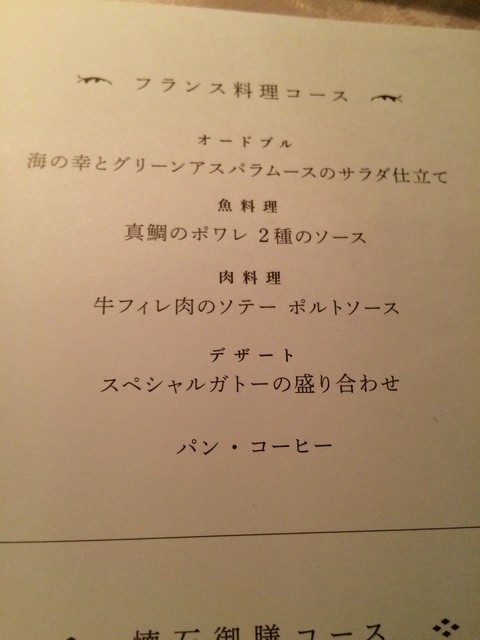 フランス料理コース
オードブル
海の幸とグリーンアスパラムースのサラダ仕立て
魚料理
真鯛のポワレ 2種のソース
肉料理
牛フィレ肉のソテー ポルトソース
デザート
スペシャルガトーの盛り合わせ
パン・コーヒー
懐石御膳コース